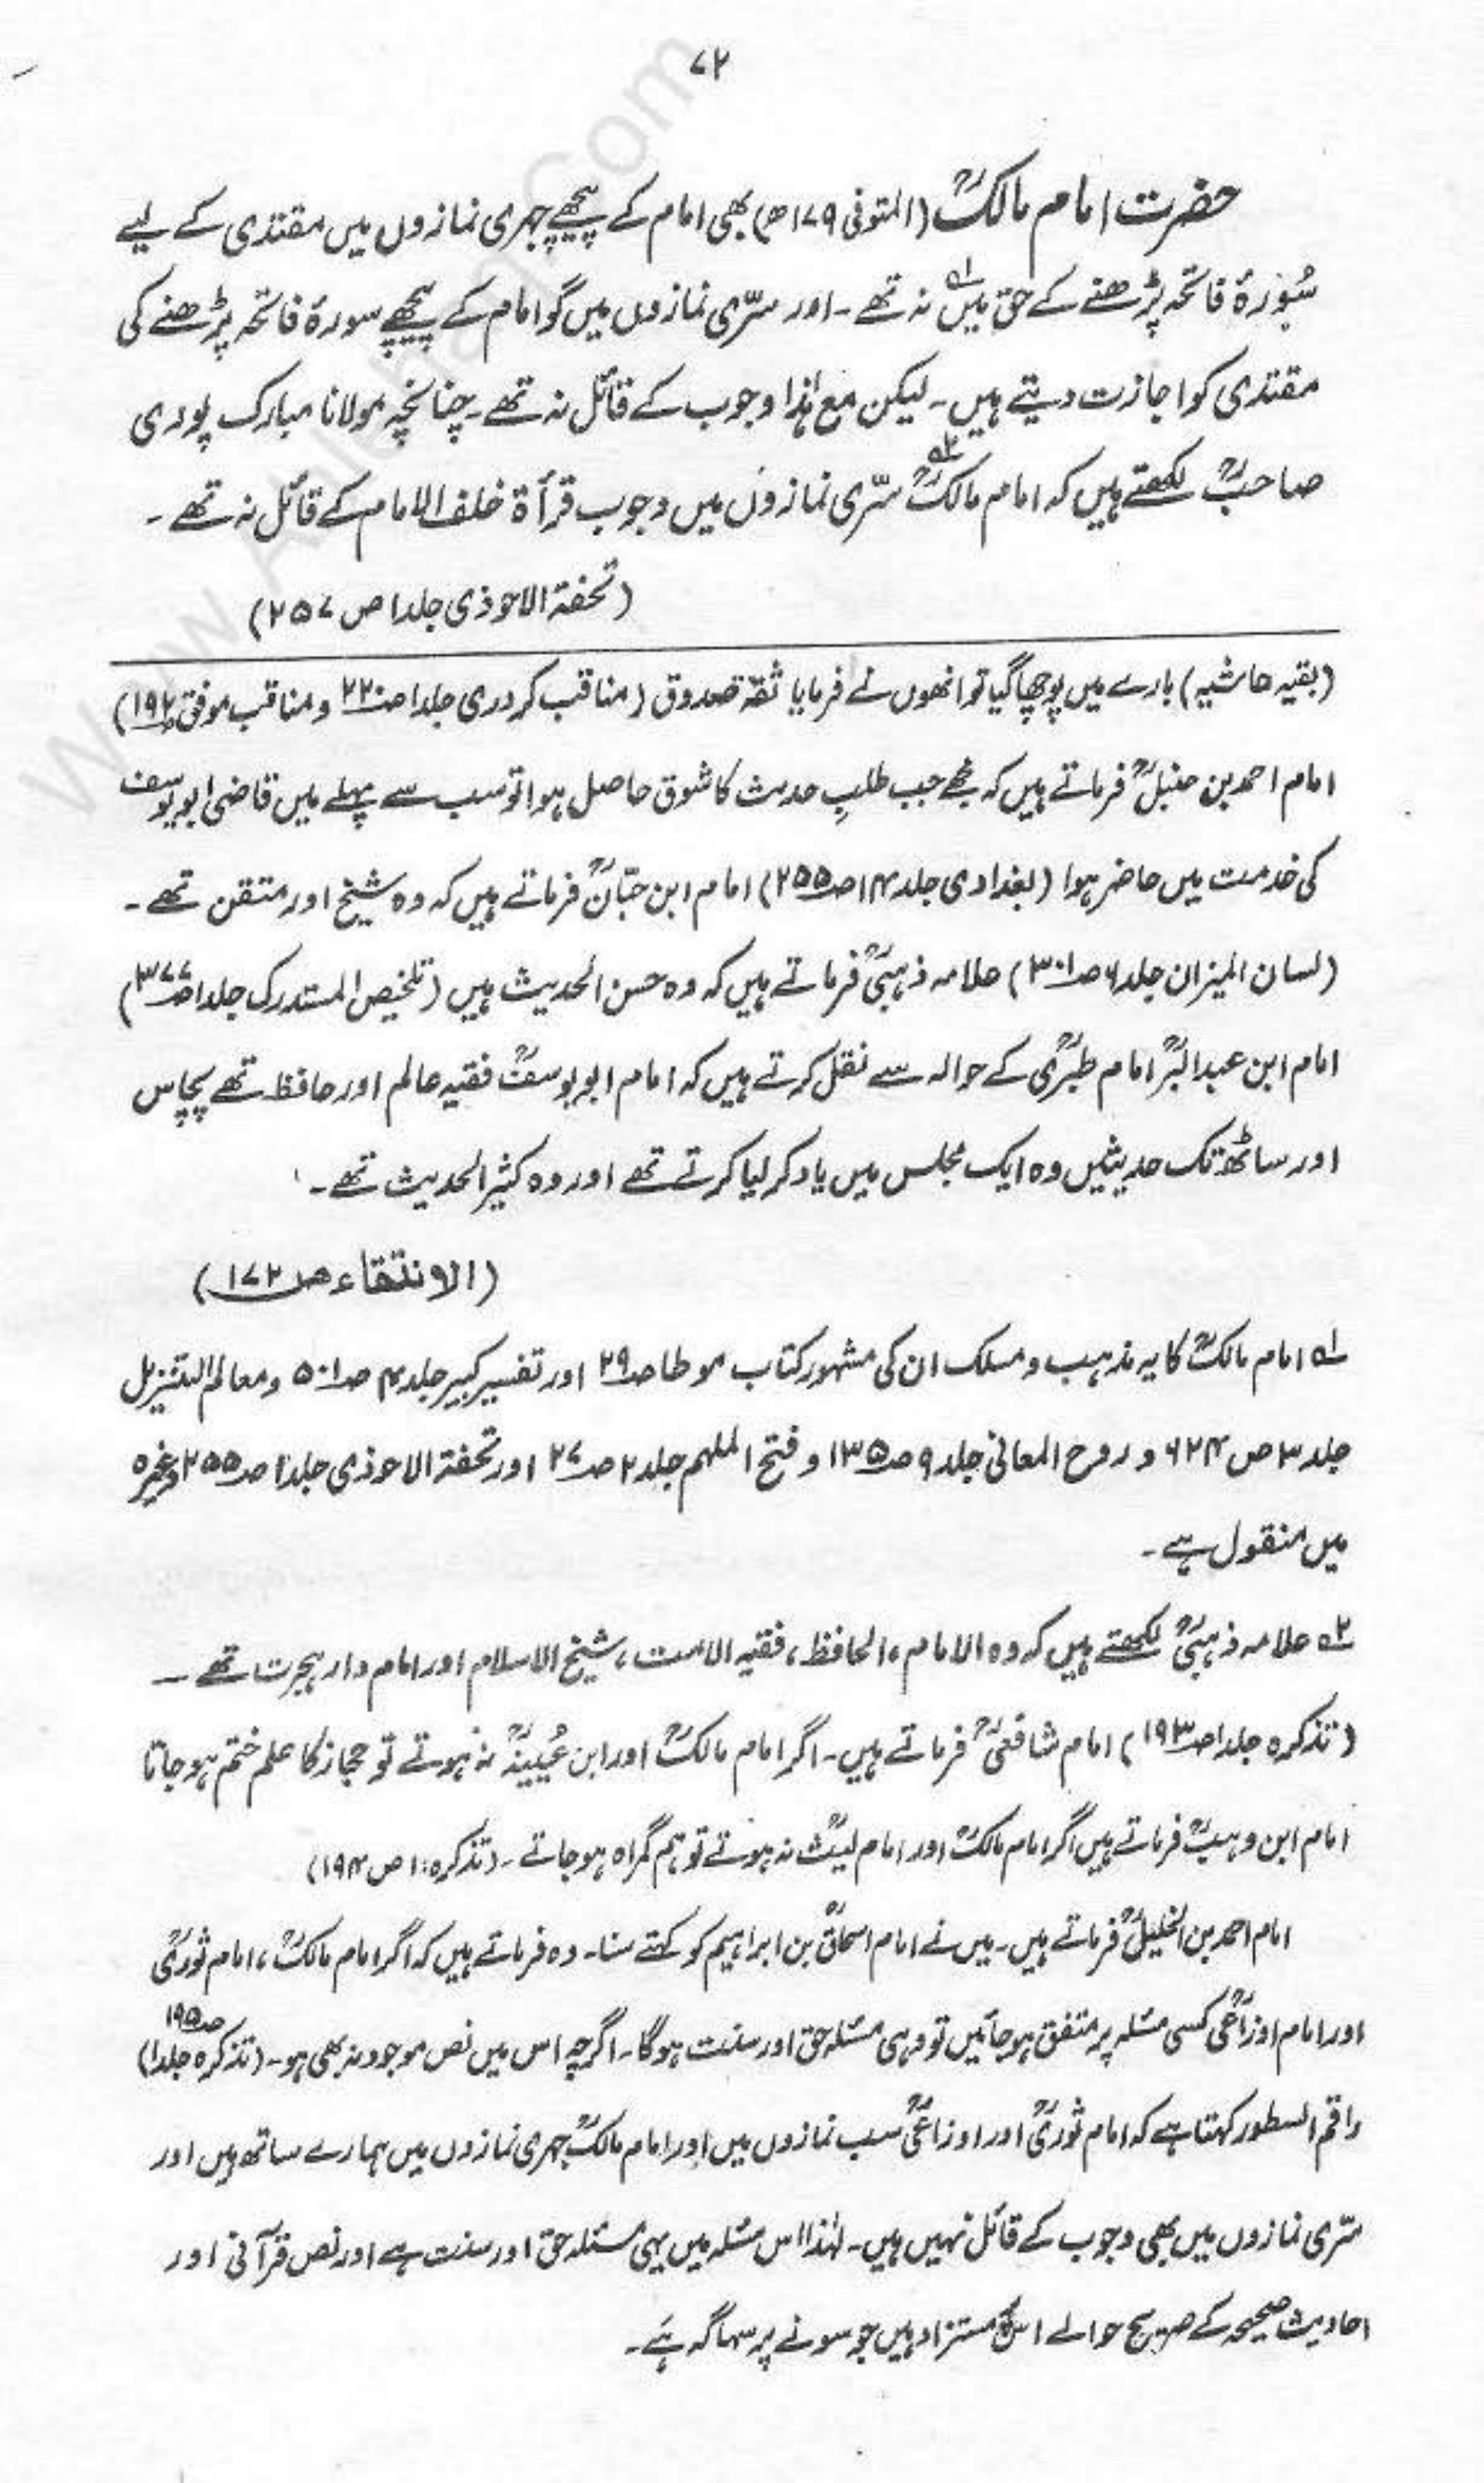 ۷۲
حضرت امام مالکؒ (المتوفی ۱۷۹ھ) بھی امام کے پیچھے جہری نمازوں میں مقتدی کے لیے
سُورۂ فاتحہ پڑھنے کے حق میں ۱؎ نہ تھے۔ اور سرّی نمازوں میں گو امام کے پیچھے سورۂ فاتحہ پڑھنے کی
مقتدی کو اجازت دیتے ہیں۔ لیکن مع ہٰذا وجوب کے قائل نہ تھے۔ چنانچہ مولانا مبارک پوری
صاحبؒ لکھتے ہیں کہ امام مالکؒ ۲؎ سرّی نمازوں میں وجوب قرأۃ خلف الامام کے قائل نہ تھے۔
(تحفۃ الاحوذی جلد۱ ص ۲۵۷)
(بقیہ حاشیہ) بارے میں پوچھا گیا تو انھوں نے فرمایا ثقۃ صدوق (مناقب کردری جلد۱ ص۲۲۰ و مناقب موفق ص۱۹۲)
امام احمد بن حنبلؒ فرماتے ہیں کہ مجھے جب طلبِ حدیث کا شوق حاصل ہوا تو سب سے پہلے میں قاضی ابو یوسف
کی خدمت میں حاضر ہوا (بغدادی جلد۱۴ ص۲۵۵) امام ابن حبّانؒ فرماتے ہیں کہ وہ شیخ اور متقن تھے۔
(لسان المیزان جلد۶ ص۳۰۱) علامہ ذہبیؒ فرماتے ہیں کہ وہ حسن الحدیث ہیں (تلخیص المستدرک جلد۱ ص۳۷۷)
امام ابن عبدالبرؒ امام طبریؒ کے حوالہ سے نقل کرتے ہیں کہ امام ابو یوسفؒ فقیہ عالم اور حافظ تھے پچاس
اور ساٹھ تک حدیثیں وہ ایک مجلس میں یاد کر لیا کرتے تھے اور وہ کثیر الحدیث تھے۔
(الانتقاء ص۱۷۲)
۱؎ امام مالکؒ کا یہ مذہب و مسلک ان کی مشہور کتاب موطا ص۲۹ اور تفسیر کبیر جلد۴ ص۵۰۱ و معالم التنزیل
جلد۳ ص ۶۲۴ و روح المعانی جلد۹ ص۱۳۵ و فتح الملہم جلد۲ ص۲۷ اور تحفۃ الاحوذی جلد۱ ص۲۵۵ وغیرہ
میں منقول ہے۔
۲؎ علامہ ذہبیؒ لکھتے ہیں کہ وہ الامام، الحافظ، فقیہ الامت، شیخ الاسلام اور امام دار ہجرت تھے ۔
(تذکرہ جلد۱ ص۱۹۳) امام شافعیؒ فرماتے ہیں۔ اگر امام مالکؒ اور ابن عُیینہؒ نہ ہوتے تو حجاز کا علم ختم ہو جاتا
امام ابن وہبؒ فرماتے ہیں اگر امام مالکؒ اور امام لیثؒ نہ ہوتے تو ہم گمراہ ہو جاتے۔ (تذکرہ:۱ ص ۱۹۴)
امام احمد بن الخلیلؒ فرماتے ہیں۔ میں نے امام اسحاقؒ بن ابراہیم کو کہتے سنا۔ وہ فرماتے ہیں کہ اگر امام مالکؒ، امام ثوریؒ
اور امام اوزاعیؒ کسی مسئلہ پر متفق ہو جائیں تو وہی مسئلہ حق اور سنت ہوگا۔ اگرچہ اس میں نص موجود نہ بھی ہو۔ (تذکرہ جلد۱ ص۱۹۵)
راقم السطور کہتا ہے کہ امام ثوریؒ اور اوزاعیؒ سب نمازوں میں اور امام مالکؒ جہری نمازوں میں ہمارے ساتھ ہیں اور
سرّی نمازوں میں بھی وجوب کے قائل نہیں ہیں۔ لہٰذا اس مسئلہ میں یہی مسئلہ حق اور سنت ہے اور نص قرآنی اور
احادیث صحیحہ کے صریح حوالے اس مستزاد ہیں جو سونے پر سہاگہ ہے۔